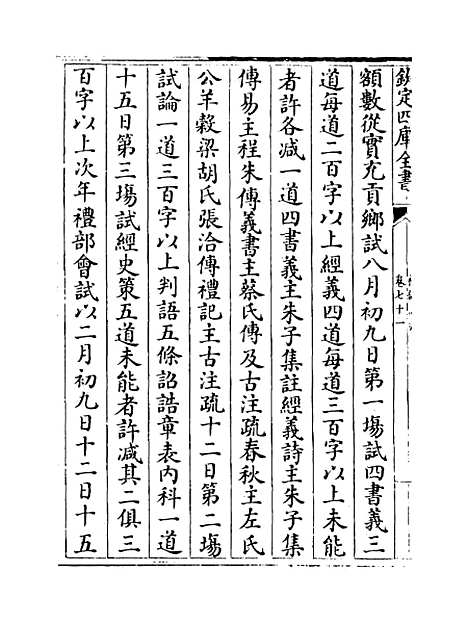 欽定四庫全書
卷七十一
額數從實充貢鄉試八月初九日第一塲試四書義三
道每道二百字以上經義四道每道三百字以上未能
者許各减一道四書義主朱子集註經義詩主朱子集
傳易主程朱傳義書主蔡氏傳及古注疏春秋主左氏
公羊穀梁胡氏張洽傳禮記主古注疏十二日第二塲
試論一道三百字以上判語五條詔誥章表内科一道
十五日第三塲試經史策五道未能者許减其二俱三
百字以上次年禮部會試以二月初九日十二日十五